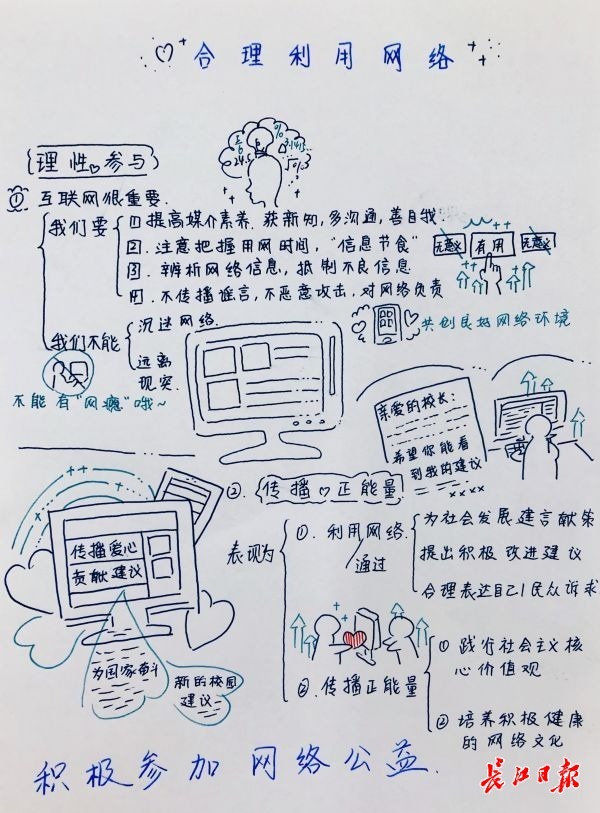 合理利用网络
理性参与
① 互联网很重要.
我们要
① 提高媒介素养. 获新知,多沟通,善自我.
②. 注意把握用网时间,"信息节食"
③. 辨析网络信息,抵制不良信息
④. 不传播谣言,不恶意攻击,对网络负责
无意义
有用
无意义
共创良好网络环境
我们不能
沉迷网络.
远离
现实
不能有"网瘾"哦~
亲爱的校长:
希望你能看
到我的建议
②. 传播正能量
传播爱心
贡献建议
为国家奋斗
新的校园
建议
表现为
①. 利用网络.
通过
为社会发展建言献策
提出积极改进建议
合理表达自己/民众诉求
②. 传播正能量
① 践行社会主义核
心价值观
② 培养积极健康
的网络文化
积极参加网络公益.
长江日报